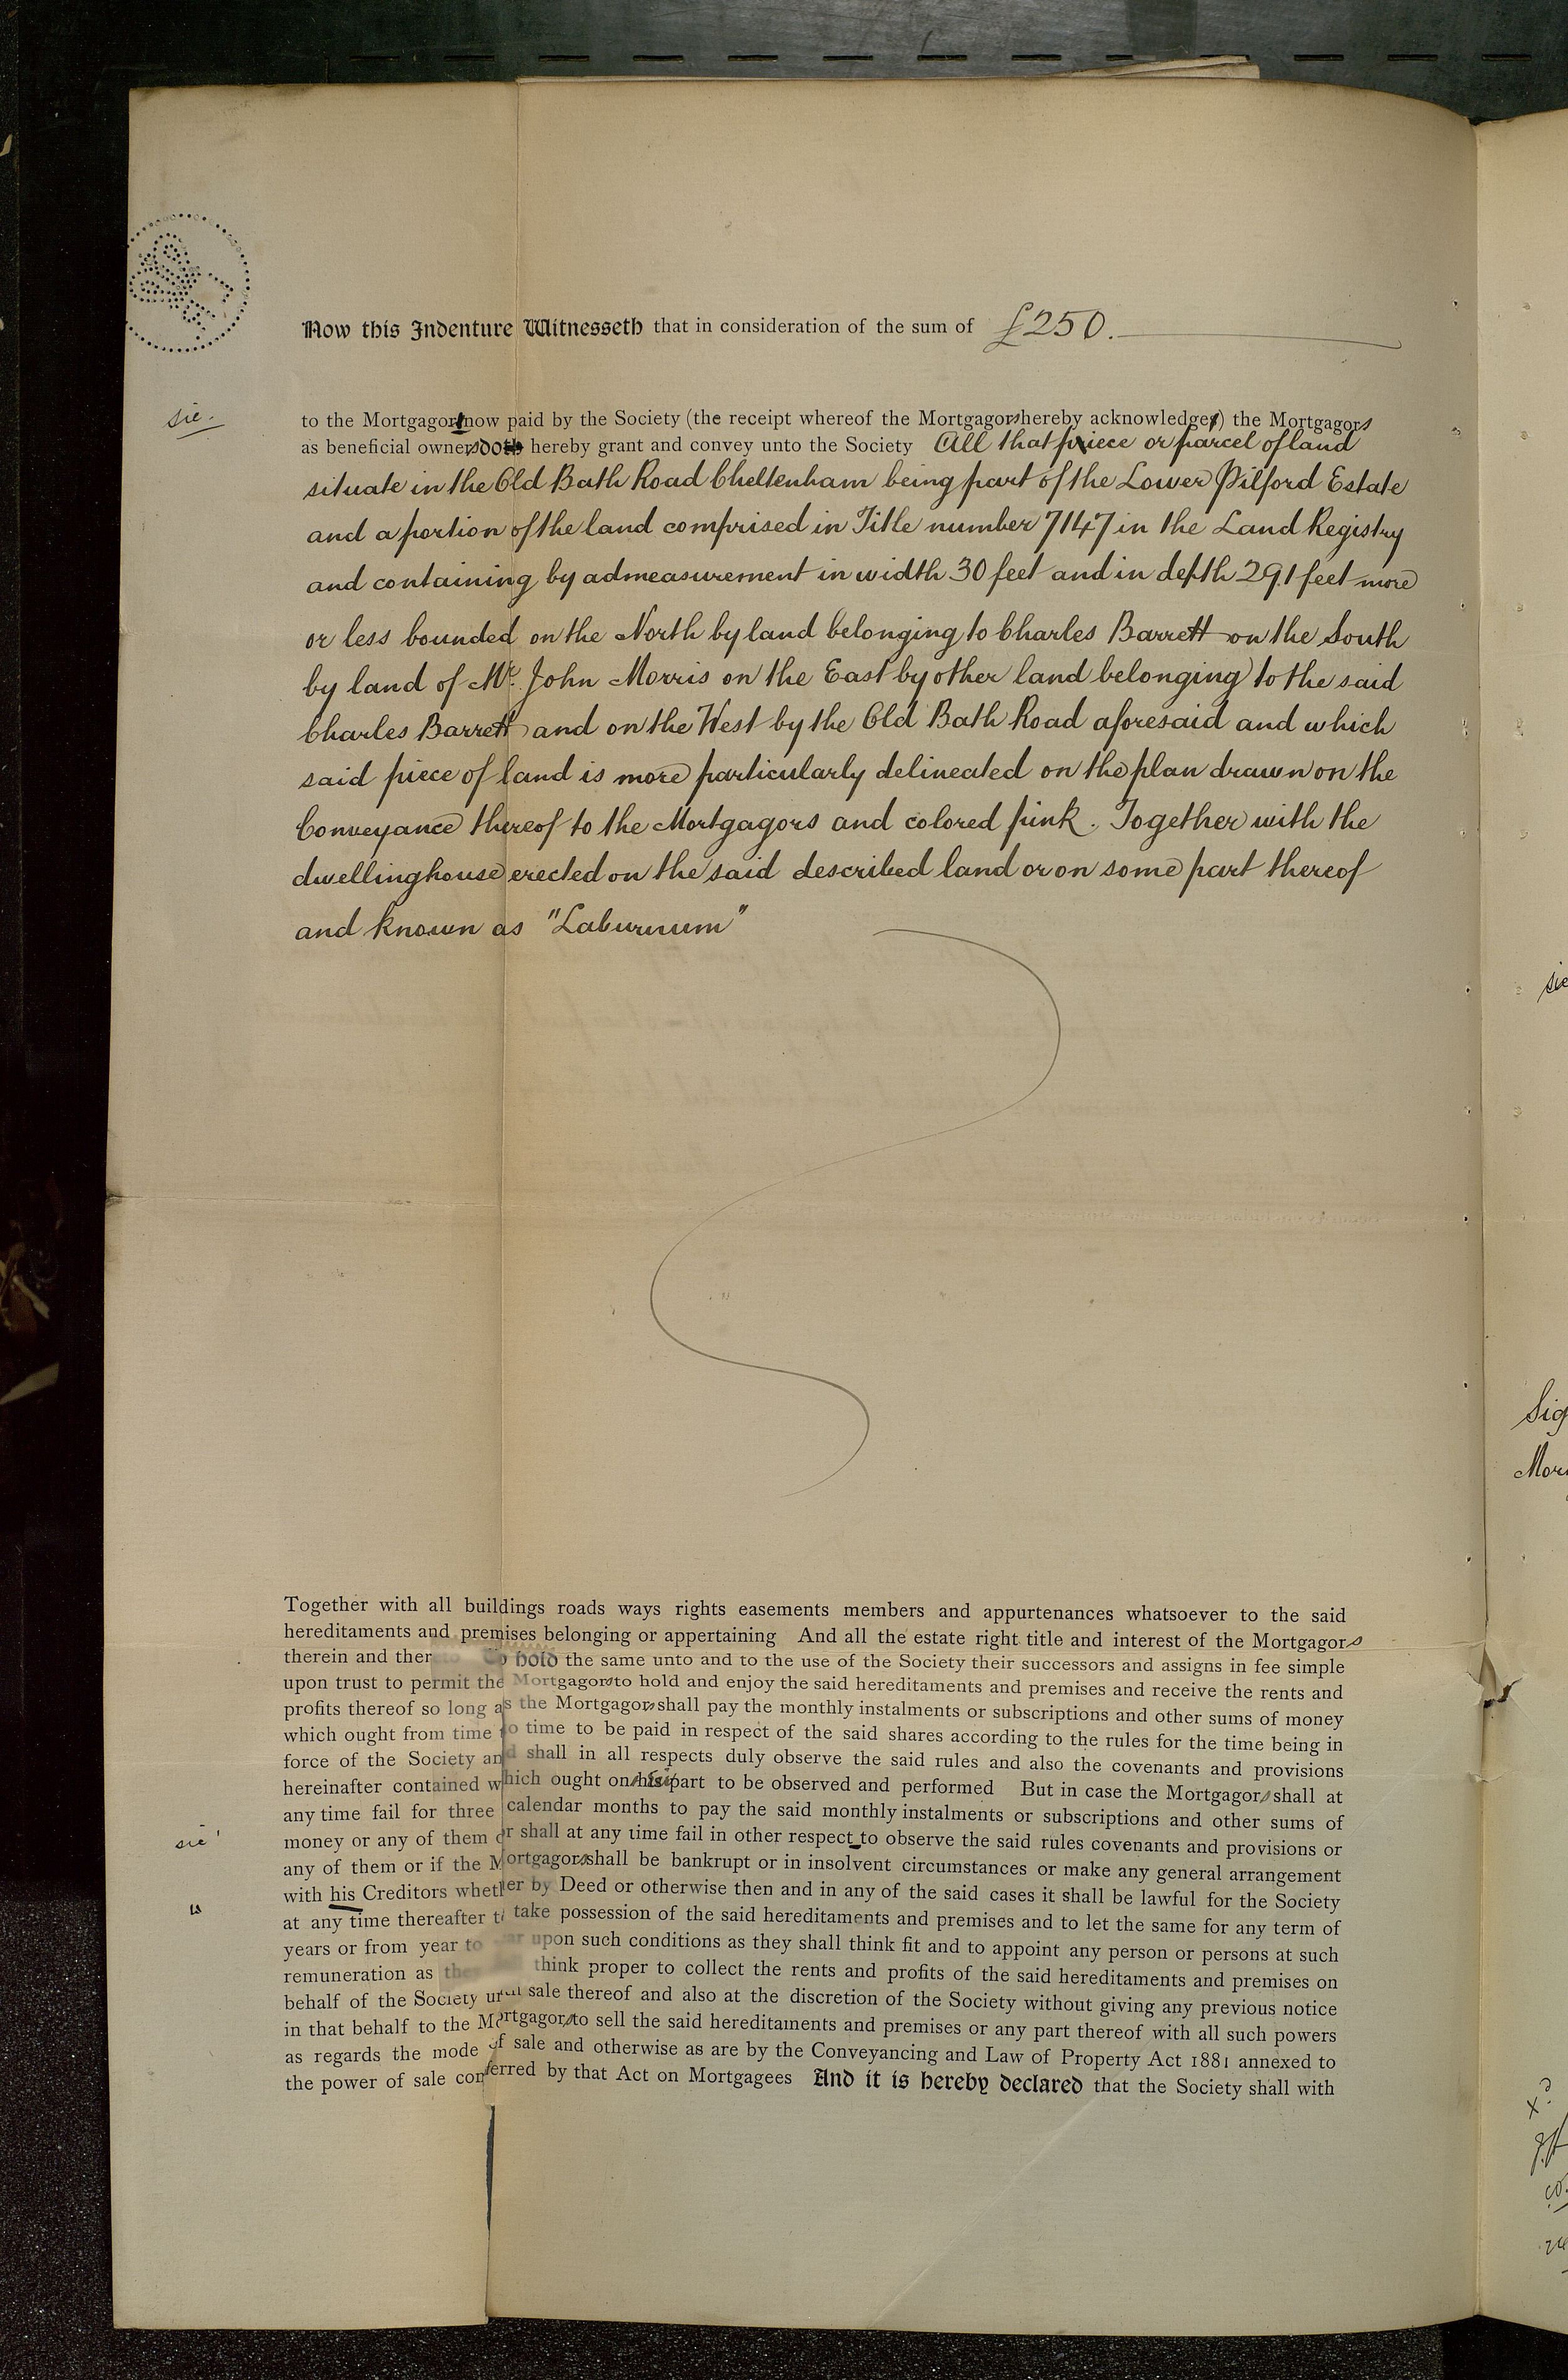 Now this Indenture Witnesseth that in consideration of the sum of £250.
sic.
to the Mortgagors now paid by the Society (the receipt whereof the Mortgagors hereby acknowledge) the Mortgagors
as beneficial owners doth hereby grant and convey unto the Society All that piece or parcel of land
situate in the Old Bath Road Cheltenham being part of the Lower Pilford Estate
and a portion of the land comprised in Title number 7147 in the Land Registry
and containing by admeasurement in width 30 feet and in depth 291 feet more
or less bounded on the North by land belonging to Charles Barrett on the South
by land of Mr. John Morris on the East by other land belonging to the said
Charles Barrett and on the West by the Old Bath Road aforesaid and which
said piece of land is more particularly delineated on the plan drawn on the
Conveyance thereof to the Mortgagors and colored pink. Together with the
dwellinghouse erected on the said described land or on some part thereof
and known as "Laburnum"
Together with all buildings roads ways rights easements members and appurtenances whatsoever to the said
hereditaments and premises belonging or appertaining And all the estate right title and interest of the Mortgagors
therein and thereto To hold the same unto and to the use of the Society their successors and assigns in fee simple
upon trust to permit the Mortgagors to hold and enjoy the said hereditaments and premises and receive the rents and
profits thereof so long as the Mortgagors shall pay the monthly instalments or subscriptions and other sums of money
which ought from time to time to be paid in respect of the said shares according to the rules for the time being in
force of the Society and shall in all respects duly observe the said rules and also the covenants and provisions
hereinafter contained which ought on his part to be observed and performed But in case the Mortgagors shall at
any time fail for three calendar months to pay the said monthly instalments or subscriptions and other sums of
sic
money or any of them or shall at any time fail in other respect to observe the said rules covenants and provisions or
any of them or if the Mortgagors shall be bankrupt or in insolvent circumstances or make any general arrangement
with his Creditors whether by Deed or otherwise then and in any of the said cases it shall be lawful for the Society
"
at any time thereafter to take possession of the said hereditaments and premises and to let the same for any term of
years or from year to year upon such conditions as they shall think fit and to appoint any person or persons at such
remuneration as they think proper to collect the rents and profits of the said hereditaments and premises on
behalf of the Society until sale thereof and also at the discretion of the Society without giving any previous notice
in that behalf to the Mortgagors to sell the said hereditaments and premises or any part thereof with all such powers
as regards the mode of sale and otherwise as are by the Conveyancing and Law of Property Act 1881 annexed to
the power of sale conferred by that Act on Mortgagees And it is hereby declared that the Society shall with